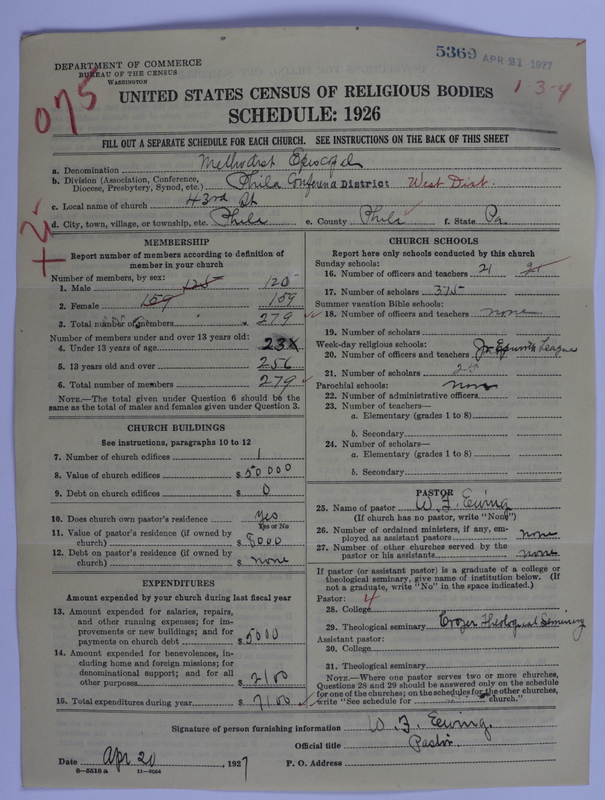 5369 APR 21 1927
DEPARTMENT OF COMMERCE
BUREAU OF THE CENSUS
WASHINGTON
075
1-3-4
UNITED STATES CENSUS OF RELIGIOUS BODIES
SCHEDULE: 1926
FILL OUT A SEPARATE SCHEDULE FOR EACH CHURCH. SEE INSTRUCTIONS ON THE BACK OF THIS SHEET
a. Denomination Methodist Episcopal
b. Division (Association, Conference,
Diocese, Presbytery, Synod, etc.) Phila Conference District West Dist.
c. Local name of church 43rd St
d. City, town, village, or township, etc. Phila e. County Phila f. State Pa
MEMBERSHIP
Report number of members according to definition of
member in your church
Number of members, by sex:
1. Male 125 120
2. Female 159 159
3. Total number of members 279
Number of members under and over 13 years old:
4. Under 13 years of age 23
5. 13 years old and over 256
6. Total number of members 279
NOTE.—The total given under Question 6 should be
same as the total of males and females given under Question 3.
CHURCH BUILDINGS
See instructions, paragraphs 10 to 12
7. Number of church edifices 1
8. Value of church edifices $50000
9. Debt on church edifices $ 0
10. Does church own pastor's residence Yes
Yes or No
11. Value of pastor's residence (if owned by
church) $ 8000
12. Debt on pastor's residence (if owned by
church) $ none
EXPENDITURES
Amount expended by your church during last fiscal year
13. Amount expended for salaries, repairs,
and other running expenses; for im-
provements or new buildings; and for
payments on church debt $5000
14. Amount expended for benevolences, in-
cluding home and foreign missions; for
denominational support; and for all
other purposes $ 2100
15. Total expenditures during year $ 7100
CHURCH SCHOOLS
Report here only schools conducted by this church
Sunday schools:
16. Number of officers and teachers 21
17. Number of scholars 375
Summer vacation Bible schools:
18. Number of officers and teachers none
19. Number of scholars
Week-day religious schools:
20. Number of officers and teachers Jr Epworth League
21. Number of scholars
Parochial schools: none
22. Number of administrative officers
23. Number of teachers—
a. Elementary (grades 1 to 8)
b. Secondary
24. Number of scholars—
a. Elementary (grades 1 to 8)
b. Secondary
PASTOR
25. Name of pastor W. F. Ewing
(If church has no pastor, write "None")
26. Number of ordained ministers, if any, em-
ployed as assistant pastors none
27. Number of other churches served by the
pastor or his assistants none
If pastor (or assistant pastor) is a graduate of a college or
theological seminary, give name of institution below. (If
not a graduate, write "No" in the space indicated.)
Pastor: 4
28. College
29. Theological seminary Crozer Theological Seminary
Assistant pastor:
30. College
31. Theological seminary
NOTE.—Where one pastor serves two or more churches,
Questions 28 and 29 should be answered only on the schedule
for one of the churches; on the schedules for the other churches,
write "See schedule for church."
Signature of person furnishing information W. F. Ewing.
Official title Pastor.
Date Apr 20, 1927 P. O. Address
8-5518 a 11-9064